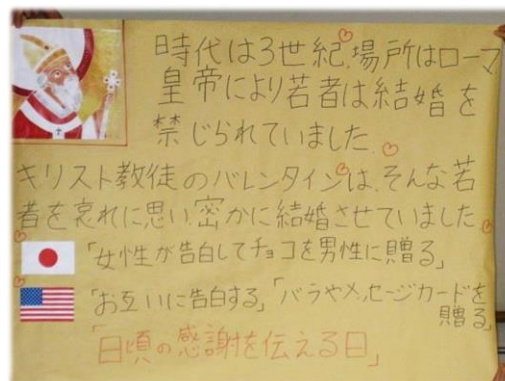 時代は3世紀.場所はローマ
皇帝により若者は結婚を
禁じられていました.
キリスト教徒のバレンタインは.そんな若
者を哀れに思い.密かに結婚させていました.
「女性が告白してチョコを男性に贈る」
「お互いに告白する」「バラやメッセージカードを
贈る」
「日頃の感謝を伝える日」